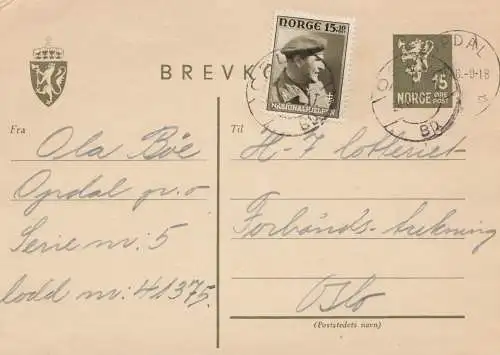 BREVKO
NORGE 15+10
NASJONALHJELPEN
15
NORGE ØRE
POST
OPDAL
6.-9-18
Fra
Ola Böe
Opdal p.o
Serie nr: 5
lodd nr: 41375.
Til
H-7 Lotteriet
Forbands-trekning
Oslo
(Poststedets navn)